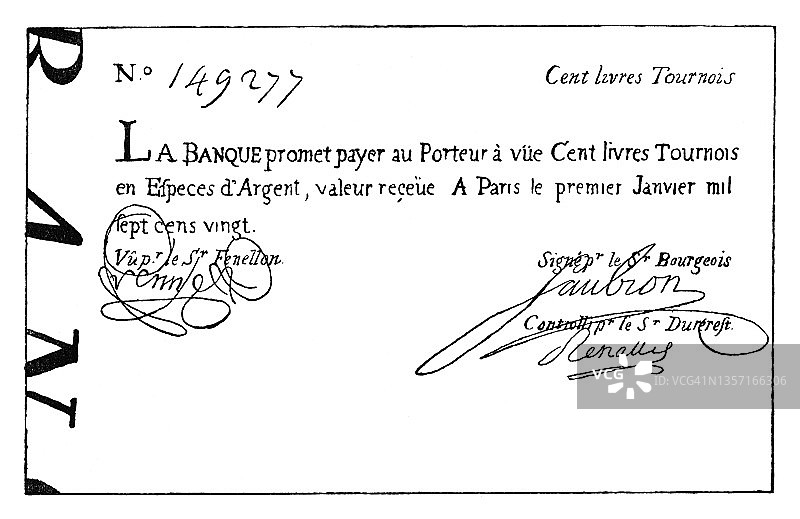 N.o 149277
Cent livres Tournois
LA BANQUE promet payer au Porteur à vüe Cent livres Tournois
en Eſpeces d'Argent, valeur reçeüe A Paris le premier Janvier mil
ſept cens vingt.
Vû p.r le S.r Fenellon.
Signé p.r le S.r Bourgeois
Controllé p.r le S.r Durerest.
VCG
ID: VCG41N1357166306